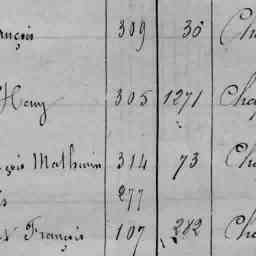 ançois 309 30 Ch
Henry 305 1271 Cha
çois Mathurin 314 73 Ch
s 277
François 107 282 Cha